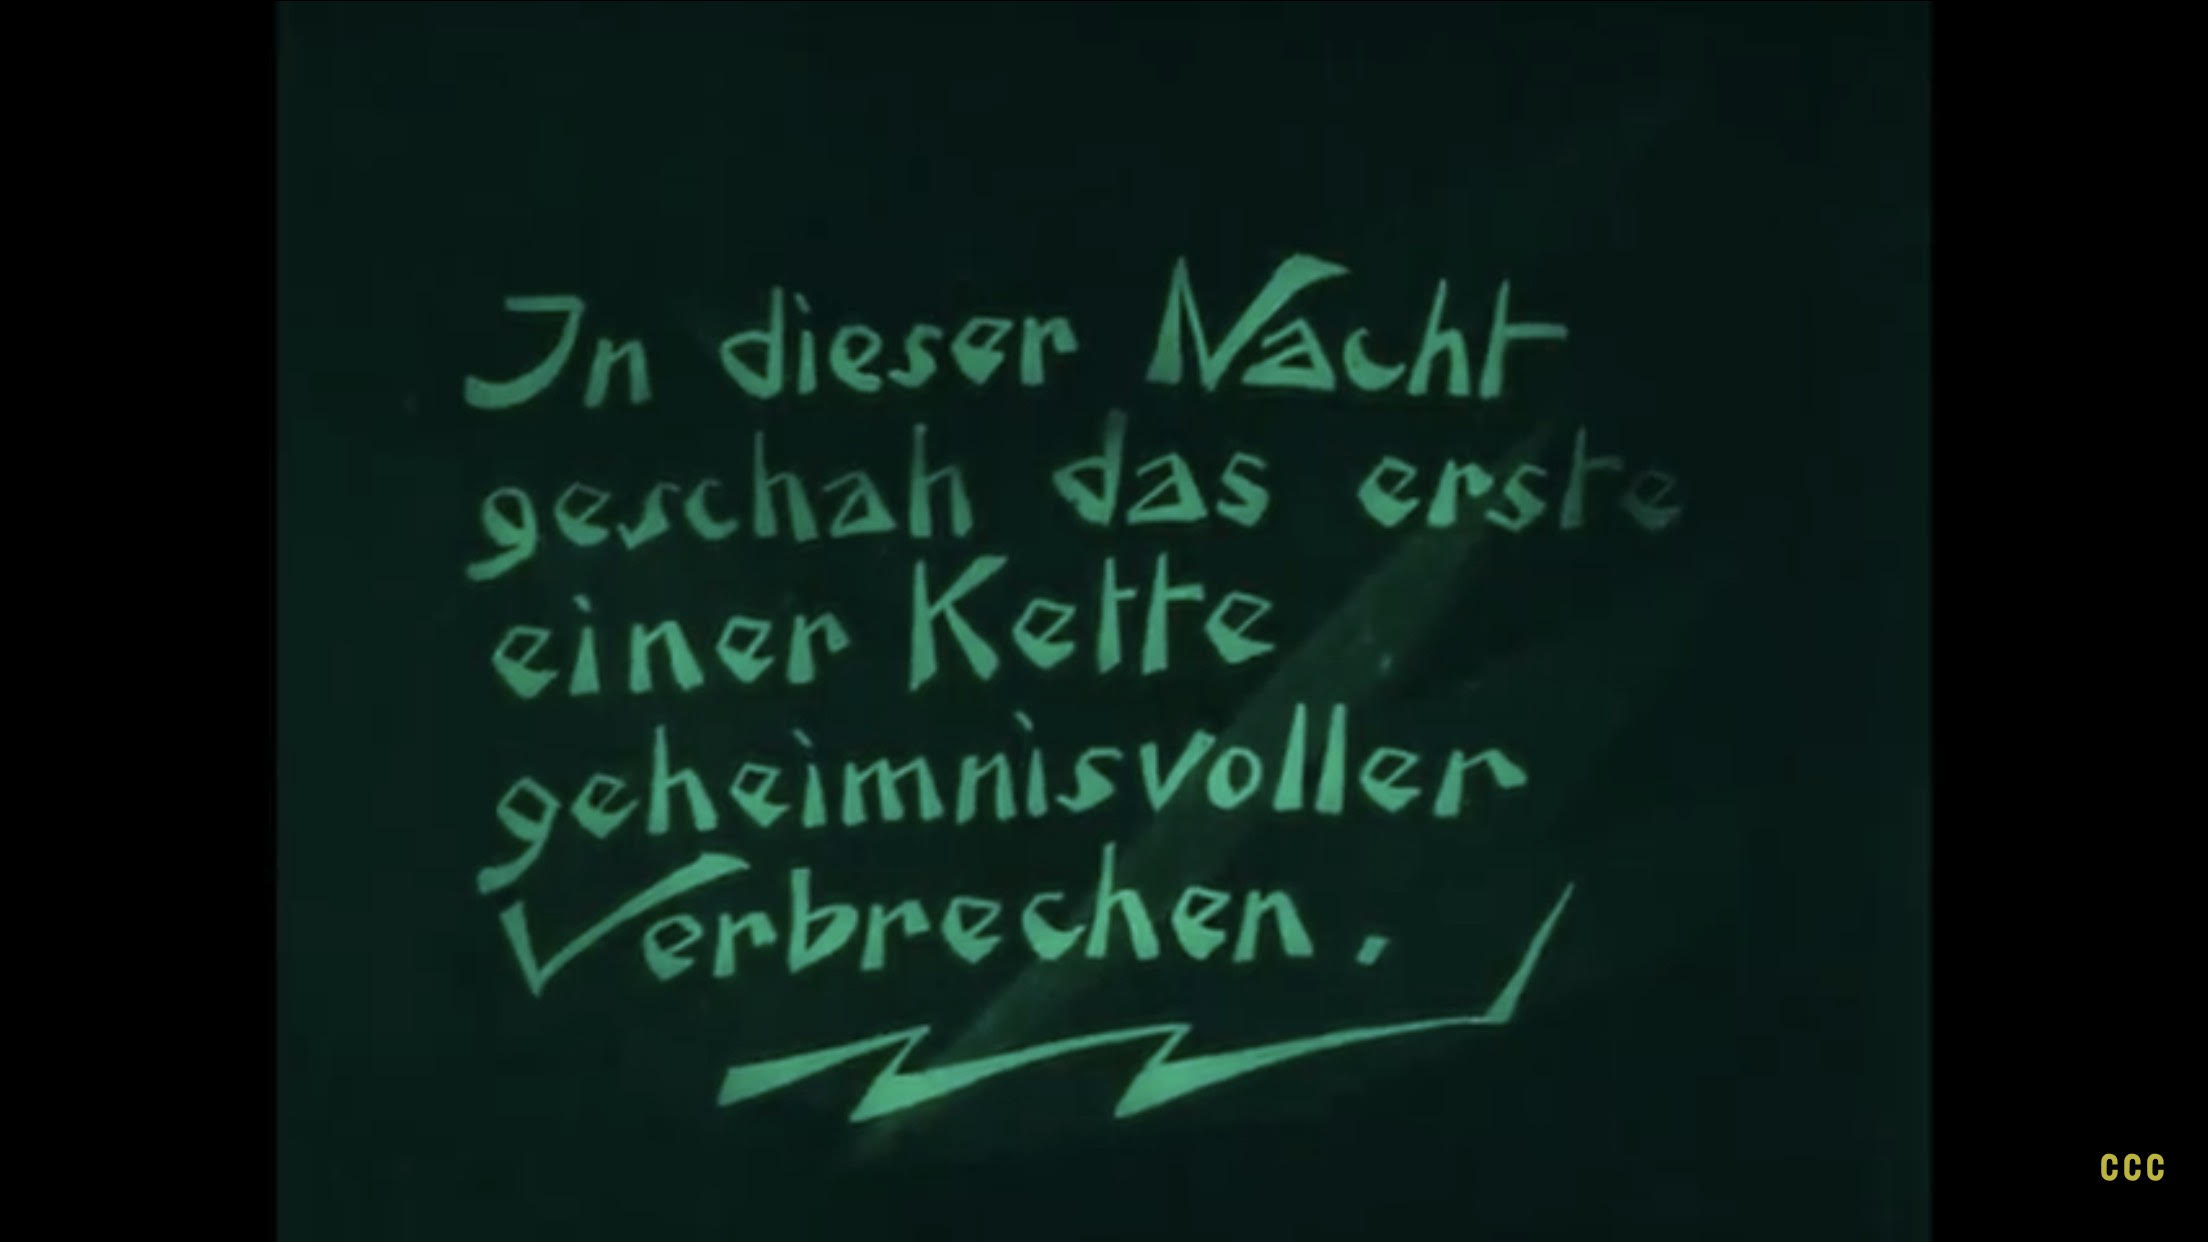 In dieser Nacht
geschah das erste
einer Kette
geheimnisvoller
Verbrechen.
CCC